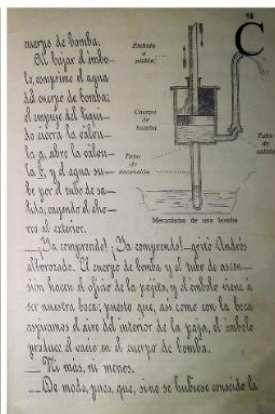 18
C
cuerpo de bomba.
Al bajar el émbo-
lo, comprime el agua
del cuerpo de bomba;
el empuje del líqui-
do cierra la válvu-
la a, abre la válvu-
la b, y el agua su-
be por el tubo de sa-
lida, cayendo el cho-
rro al exterior.
Embolo
o
pistón
Cuerpo
de
bomba
Tubo
de
salida
Tubo
de
ascensión
Mecanismo de una bomba
—¡Ya comprendo! ¡Ya comprendo! —gritó Andrés
alborozado. El cuerpo de bomba y el tubo de ascen-
sión hacen el oficio de la pajita; y el émbolo viene a
ser nuestra boca; puesto que, así como con la boca
aspiramos el aire del interior de la paja, el émbolo
produce el vacío en el cuerpo de bomba.
—Ni más, ni menos.
—De modo, pues, que, si no se hubiese conocido la